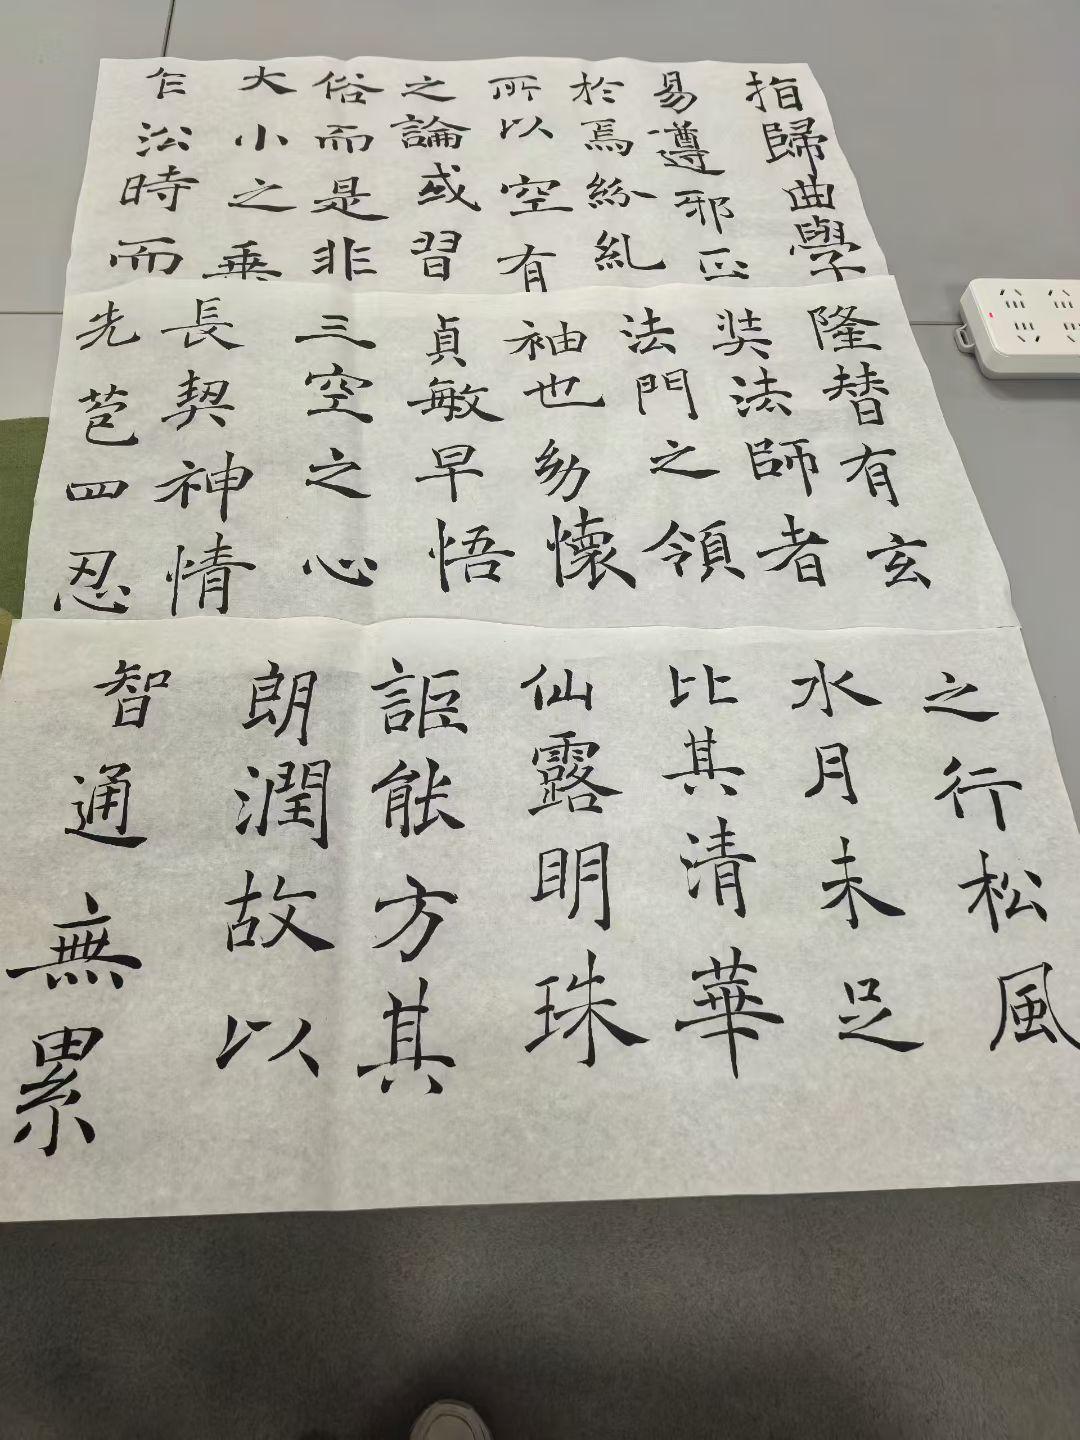 指歸曲學
易遵邪正
於焉紛糺
所以空有
之論或習
俗而是非
大小之乗
乍沿時而
隆替有玄
奘法師者
法門之領
袖也幼懷
貞敏早悟
三空之心
長契神情
先苞四忍
之行松風
水月未足
比其清華
仙露明珠
詎能方其
朗潤故以
智通無累